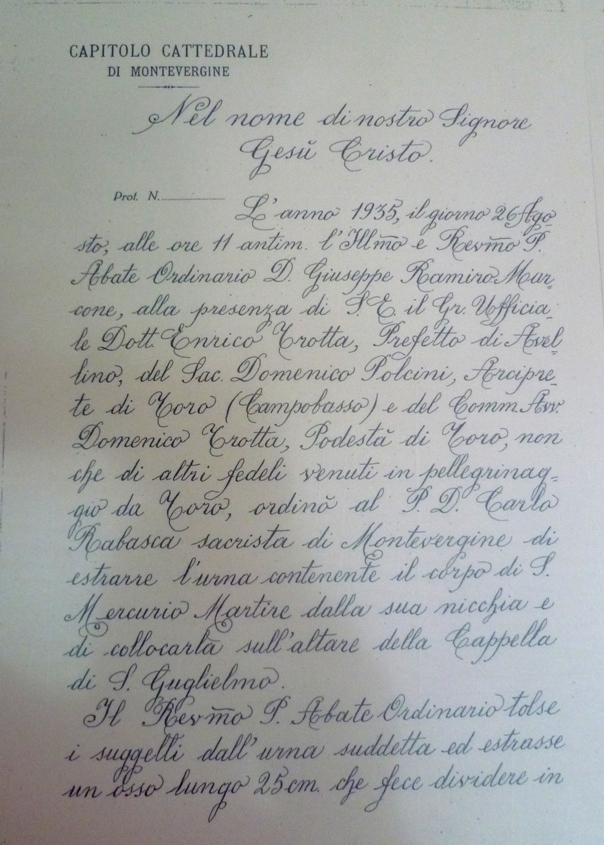 CAPITOLO CATTEDRALE
DI MONTEVERGINE
Nel nome di nostro Signore
Gesŭ Cristo.
Prot. N.
L'anno 1935, il giorno 26 Ago-
sto, alle ore 11 antim. l'Illm̃o e Revm̃o P.
Abate Ordinario D. Giuseppe Ramiro Mar-
cone, alla presenza di S.E. il Gr. Ufficia-
le Dott. Enrico Trotta, Prefetto di Avel-
lino, del Sac. Domenico Polcini, Arcipre-
te di Toro (Campobasso) e del Comm. Avv.
Domenico Trotta, Podestă di Toro, non
che di altri fedeli venuti in pellegrinag-
gio da Toro, ordinŏ al P. D. Carlo
Rabasca sacrista di Montevergine di
estrarre l'urna contenente il corpo di S.
Mercurio Martire dalla sua nicchia e
di collocarla sull'altare della Cappella
di S. Guglielmo.
Il Revm̃o P. Abate Ordinario tolse
i suggelli dall'urna suddetta ed estrasse
un osso lungo 25 cm. che fece dividere in